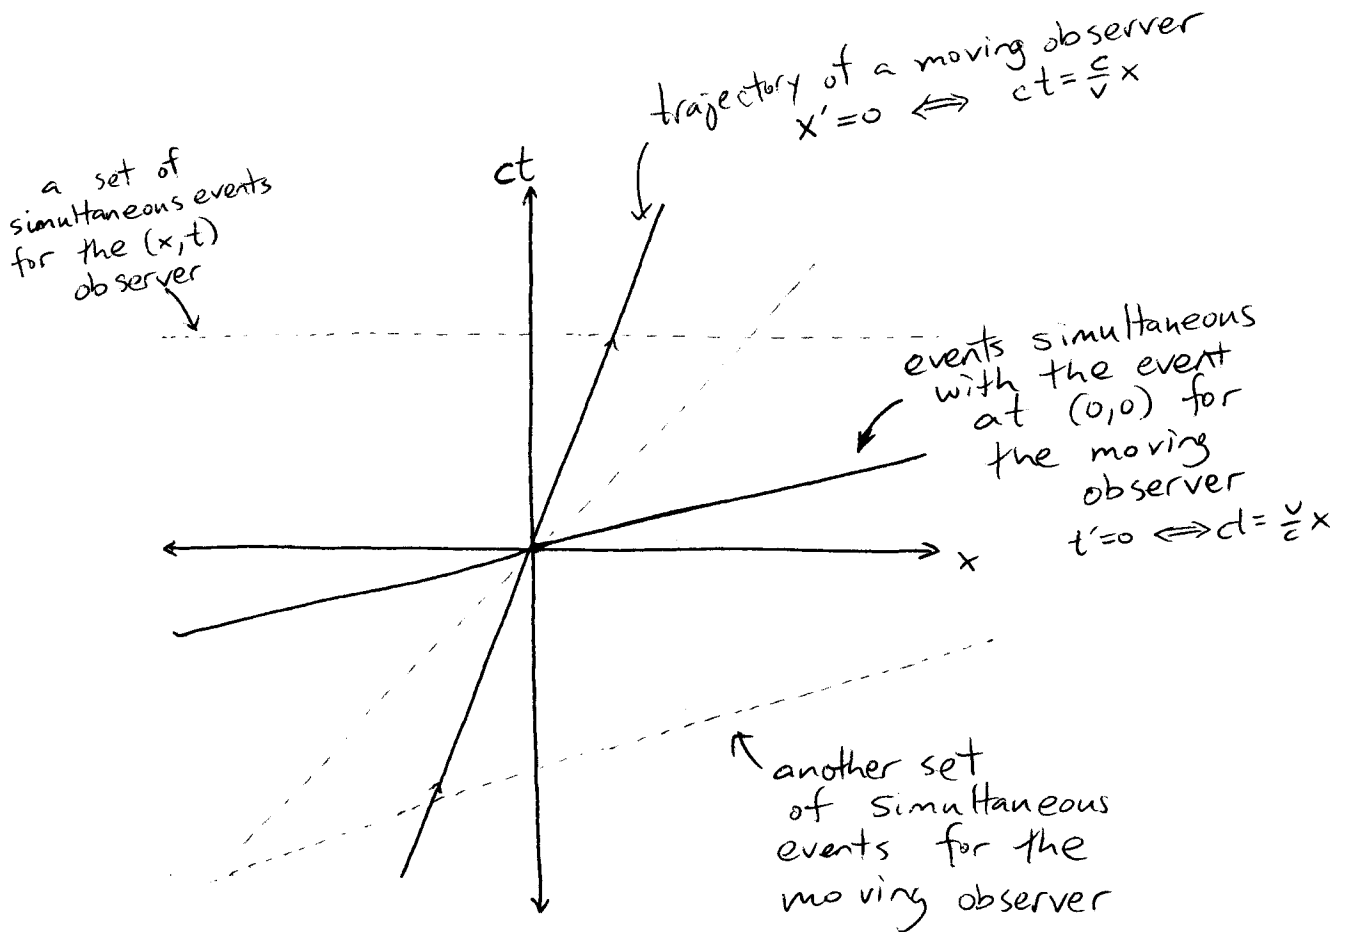 trajectory of a moving observer
x'=0 ⟺ ct = c/v x
a set of
simultaneous events
for the (x,t)
observer
ct
events simultaneous
with the event
at (0,0) for
the moving
observer
t'=0 ⟺ ct = v/c x
x
another set
of simultaneous
events for the
moving observer